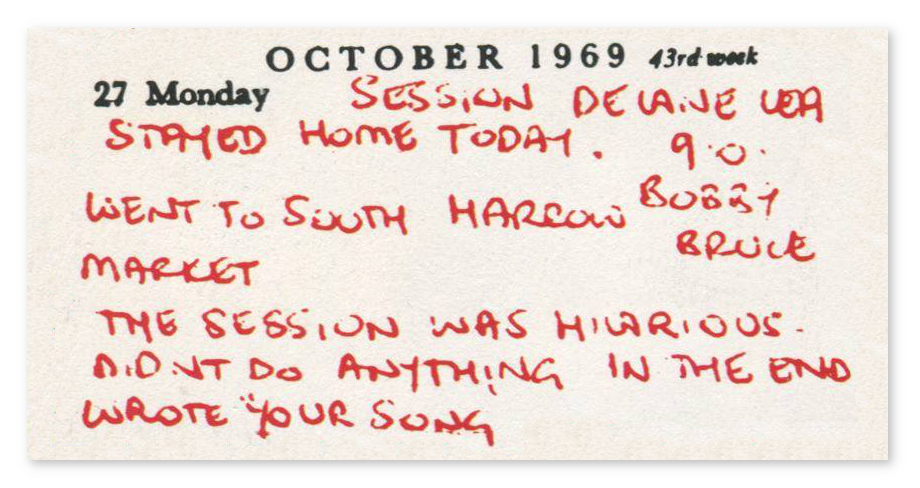 OCTOBER 1969 43rd week
27 Monday SESSION DE LANE LEA
STAYED HOME TODAY. 9.0.
WENT TO SOUTH HARROW BOBBY
BRUCE
MARKET
THE SESSION WAS HILARIOUS.
DIDNT DO ANYTHING IN THE END
WROTE "YOUR SONG